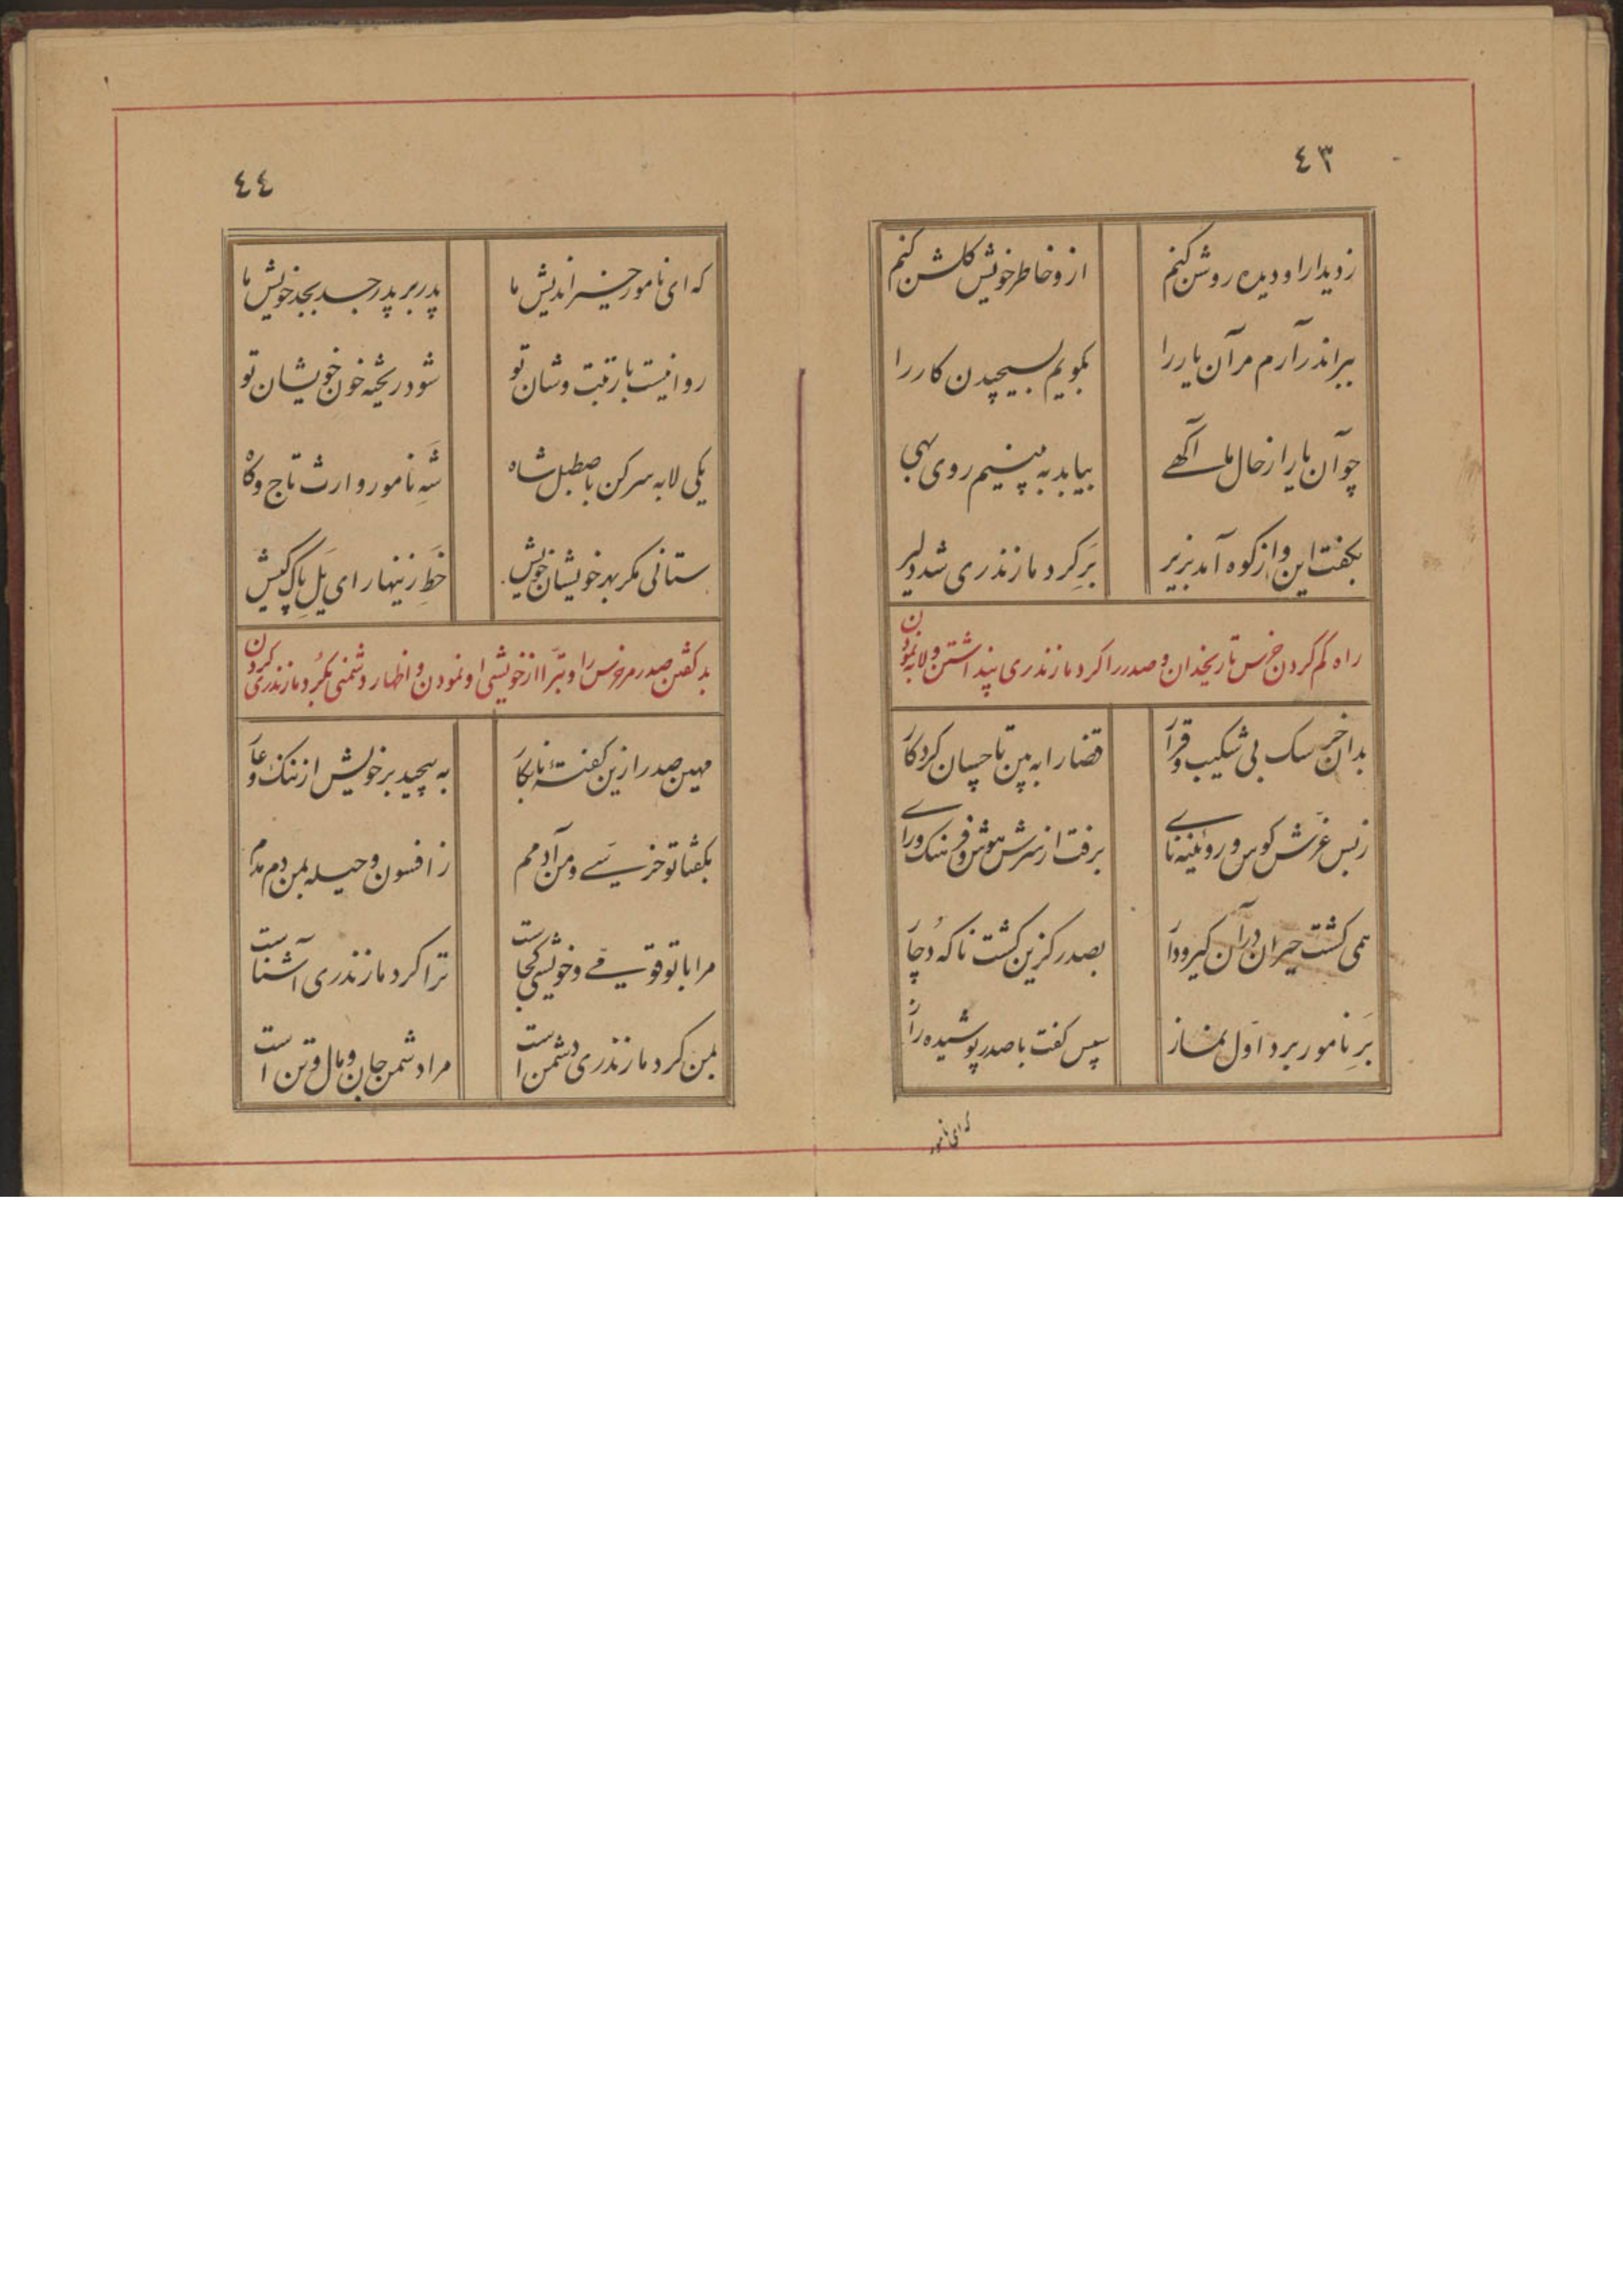 ٤٣
ز دیدار او دیده روشن کنم از و خاطر خویش کلشن کنم
ببر اندر آرم مر آن یار را بکویم بسیچیدن کار را
چو آن یار از حال ما آکهی بیابد به بینیم روی بهی
بکفت این و از کوه آمد بزیر بَرِ کرد مازندری شد دلیر
راه کم کردن خرس تاریخدان و صدر را کرد مازندری پنداشتن و لابه نمودن
بدان خرسک بی شکیب و قرار قضا را به بین تا چسان کرد کار
ز بس غرّش کوس و روئینه نای برفت از سرش هوش و فرهنک و رای
همی کشت حیران در آن کیرودار بصدر کزین کشت ناکه دُچار
بَرِ نامور برد اوّل نماز سپس کفت با صدر پوشیده راز
که ای نامور
٤٤
که ای نامور خیر اندیش ما پدر بر پدر جد بجد خویش ما
روا نیست با رتبت و شان تو شود ریخته خون خویشان تو
یکی لابه سر کن باصطبل شاه شَهِ نامور وارث تاج و کاه
ستانی مکر بهر خویشان خویش خَطِ زینهار ای یَلِ پاک کیش
بد کفتن صدر مر خرس را و تبرّا از خویشی او نمودن و اظهار دشمنی بکُرد مازندری کردن
مهین صدر ازین کفتهٔ نابکار به پیچید بر خویش از ننک و عار
بکفتا تو خرسی و من آدمم ز افسون و حیله بمن دم مدم
مرا با تو قومی و خویشی کجاست ترا کرد مازندری آشناست
بمن کرد مازندری دشمن است مرا دشمن جان و مال و تن است